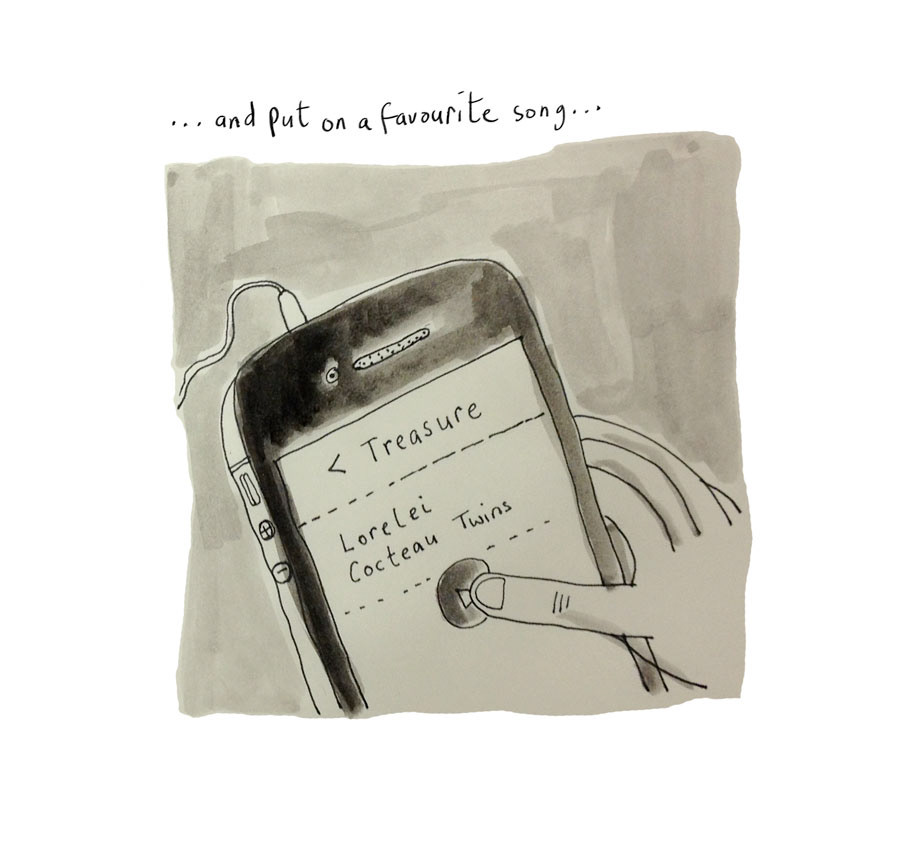 ... and put on a favourite song...
< Treasure
Lorelei
Cocteau Twins